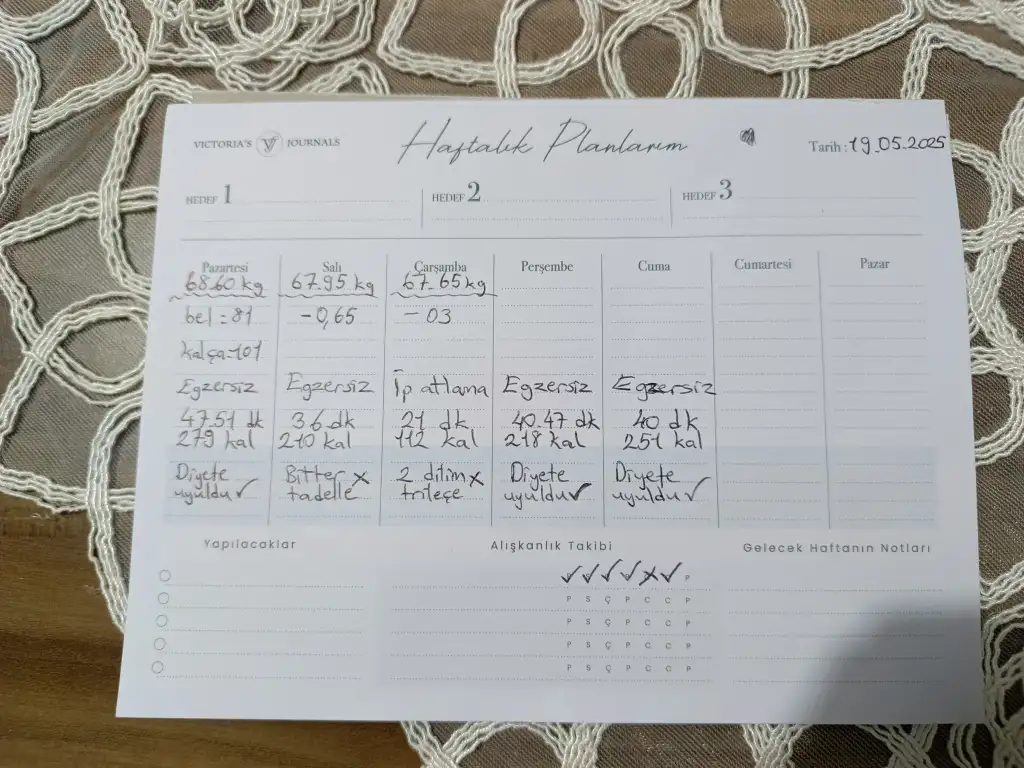 VICTORIA'S JOURNALS
Haftalık Planlarım
Tarih : 19.05.2025
HEDEF 1
HEDEF 2
HEDEF 3
Pazartesi
68.60 kg
bel = 81
kalça=101
Egzersiz
47.51 dk
279 kal
Diyete
uyuldu ✓
Salı
67.95 kg
-0,65
Egzersiz
36 dk
210 kal
Bitter x
tadelle
Çarşamba
67.65 kg
- 03
İp atlama
21 dk
112 kal
2 dilim x
trileçe
Perşembe
Egzersiz
40.47 dk
218 kal
Diyete
uyuldu ✓
Cuma
Egzersiz
40 dk
251 kal
Diyete
uyuldu ✓
Cumartesi
Pazar
Yapılacaklar
Alışkanlık Takibi
✓ ✓ ✓ ✓ x ✓ P
P S Ç P C C P
P S Ç P C C P
P S Ç P C C P
P S Ç P C C P
Gelecek Haftanın Notları